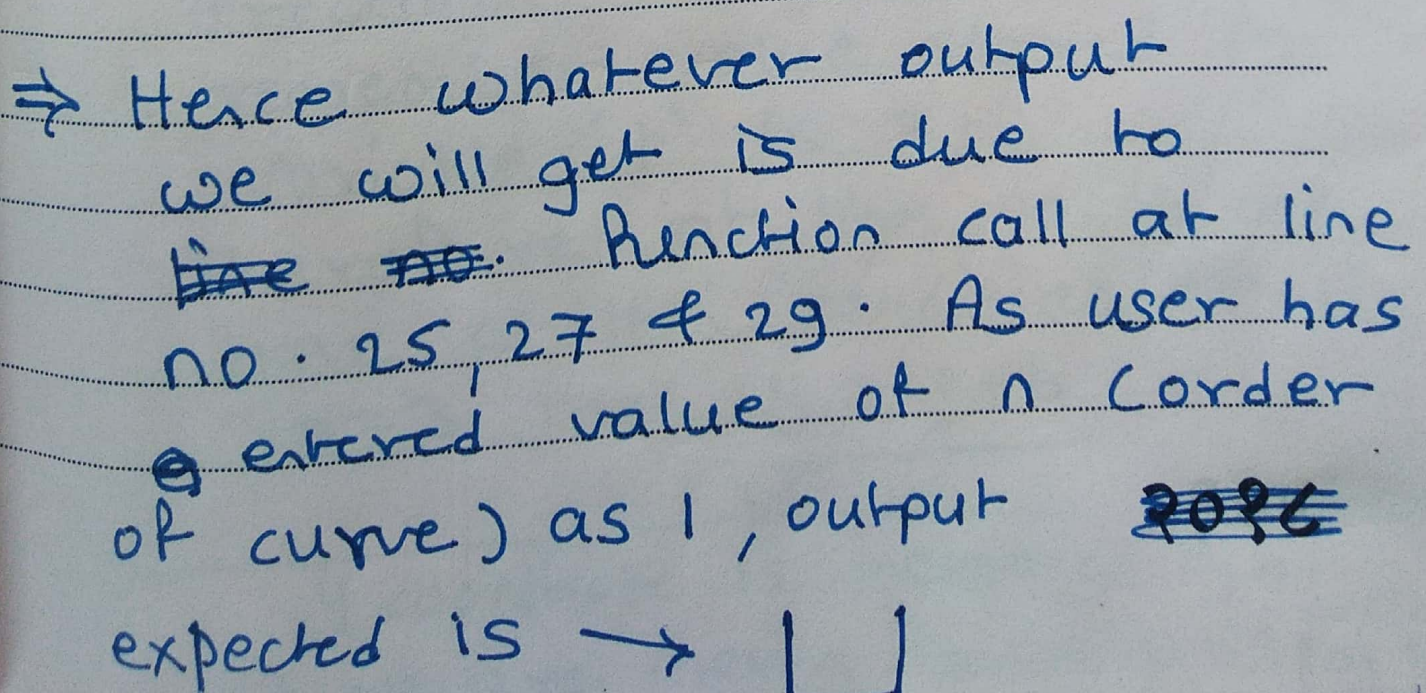 ⇒ Hence whatever output
we will get is due to
line no. function call at line
no. 25, 27 & 29. As user has
entered value of n (order
of curve) as 1, output
expected is →